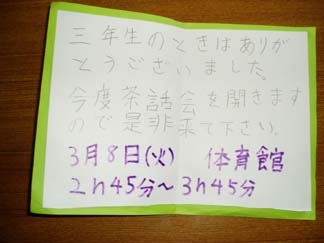 三年生のときはありが
とうございました。
今度茶話会を開きます
ので是非来て下さい。
3月8日(火) 体育館
2h45分〜3h45分